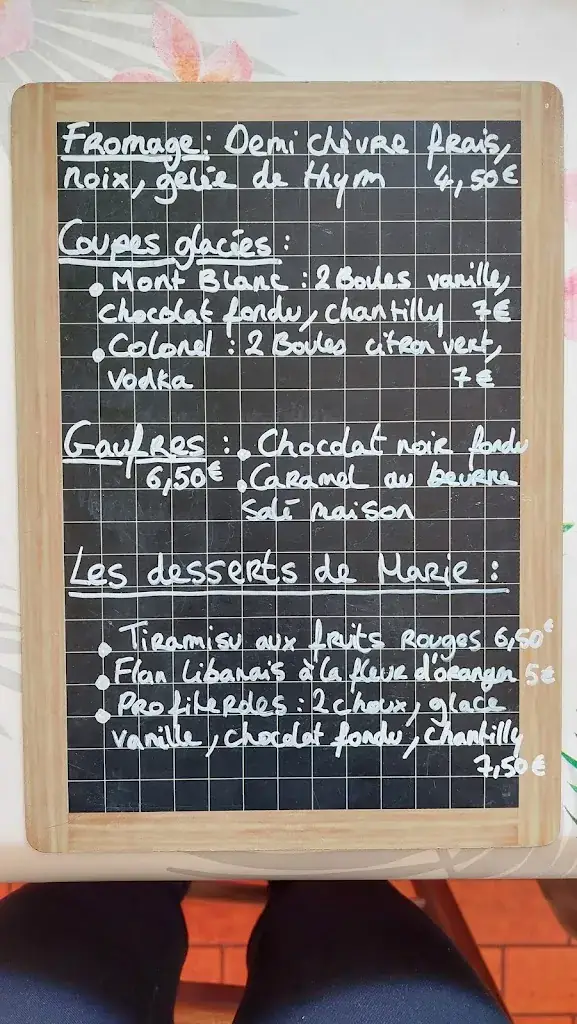 Fromage : Demi chèvre frais,
noix, gelée de thym 4,50€
Coupes glacées :
• Mont Blanc : 2 Boules vanille,
chocolat fondu, chantilly 7€
• Colonel : 2 Boules citron vert,
vodka 7€
Gaufres : • Chocolat noir fondu
6,50€ • Caramel au beurre
salé maison
Les desserts de Marie :
• Tiramisu aux fruits rouges 6,50€
• Flan Libanais à la fleur d'oranger 5€
• Profiteroles : 2 choux, glace
vanille, chocolat fondu, chantilly
7,50€